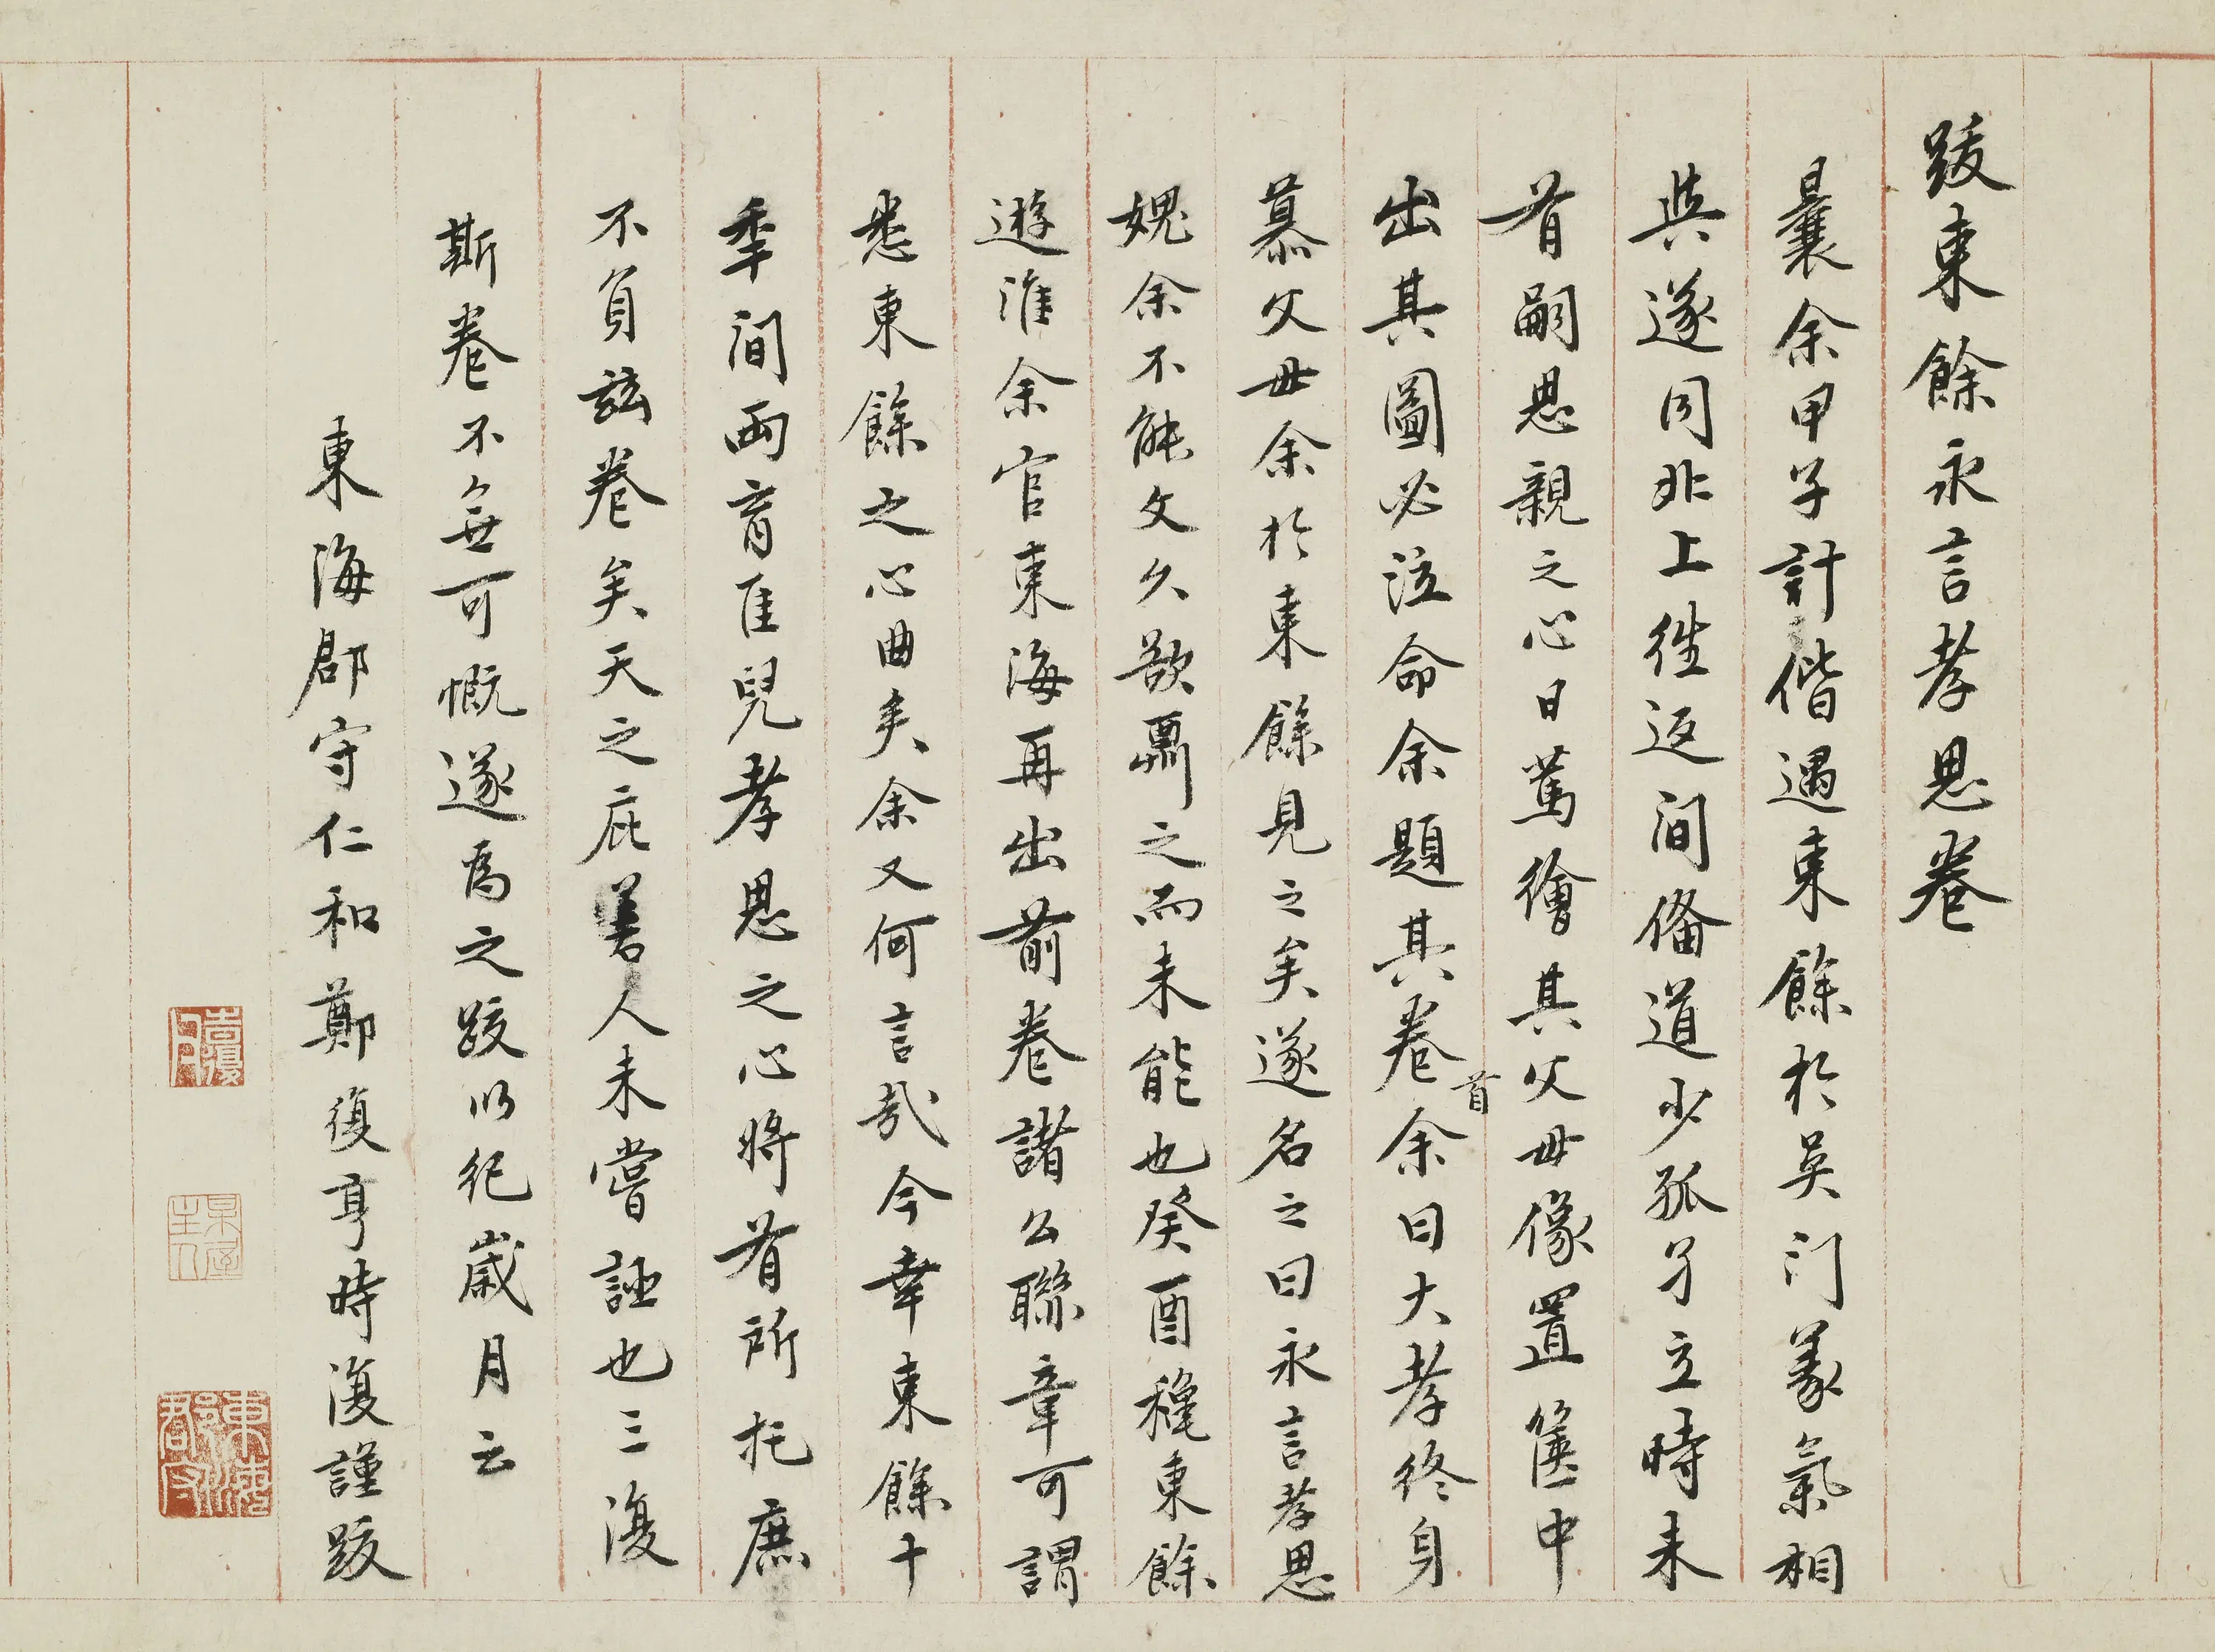 跋東餘永言孝思卷
曩余甲子計偕遇東餘於吳门義氣相
與遂同北上徃返间偹道少孤孑立時未
有嗣思親之心日篤繪其父母像置篋中
出其圖必泣命余題其卷首余曰大孝終身
慕父母余於東餘見之矣遂名之曰永言孝思
媿余不能文久欲罽之而未能也癸酉穐東餘
遊淮余官東海再出前卷諸公聯章可謂
悉東餘之心曲矣余又何言哉今幸東餘十
季间両育佳兒孝思之心將有所托庶
不負玆卷矣天之庇善人未嘗誣也三復
斯卷不無可慨遂爲之跋以紀歲月云
東海郡守仁和鄭復亨時復謹跋